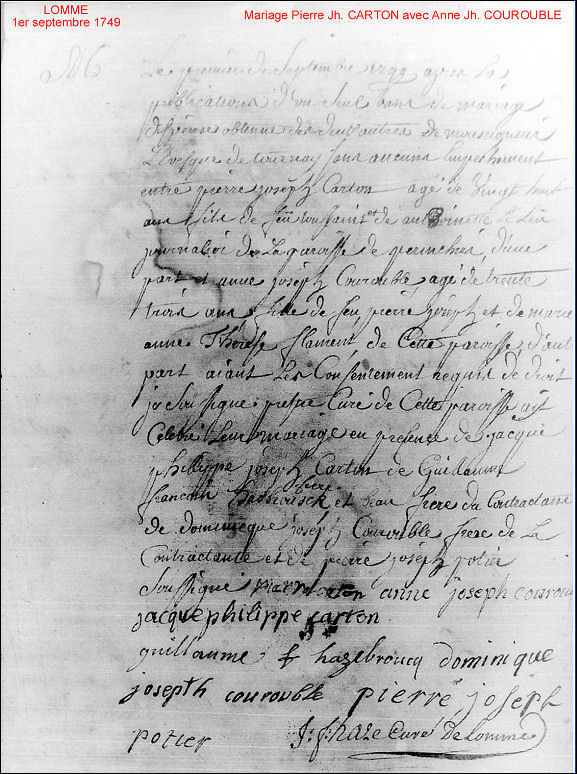 LOMME
1er septembre 1749
Mariage Pierre Jh. CARTON avec Anne Jh. COUROUBLE
Le premier de Septembre 1749 apres Les
publications d'un Seul bans de mariag
dispense obtenue des deux autres de monseigneur
L'Evesque de tournay sans aucuns Empechement
entre pierre joseph Carton agé de vingt huit
ans fils de feu toussaint et de antoinette Le
journalier de La paroisse de perinchies, d'une
part et anne joseph Courouble agé de trente
trois ans fille de feu pierre joseph et de marie
anne Thérèse flament de Cette paroisse d'aut
part aiant Les Consentement requis de droit
je Soussigné prestre Curé de Cette paroisse ait
Celebré Leur mariage en presence de jacque
philippe joseph Carton de Guillaume
francois frere et beau frere du Contractant
de dominique joseph Courouble frere de La
Contractante et de pierre joseph potier
Soussigné pierre carton anne joseph courou
jacque philippe carton
guillaume f hazebroucq dominique
joseph courouble pierre joseph
potier J: f: haze Curé de Lomme